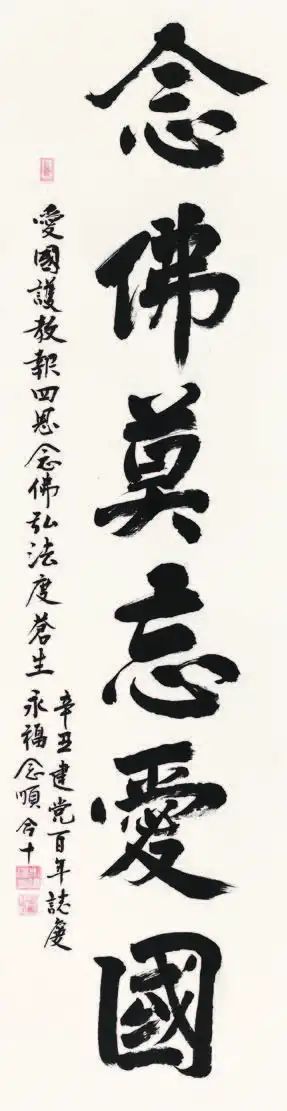 念佛莫忘愛國
愛國護教報四恩念佛弘法度蒼生
辛丑建党百年誌慶
永福念順合十